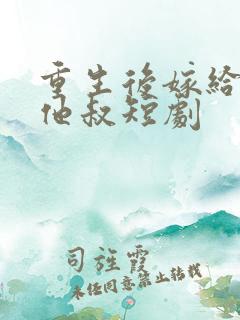 重生後嫁給
他叔短劇
司旌霞
未经同意禁止转载